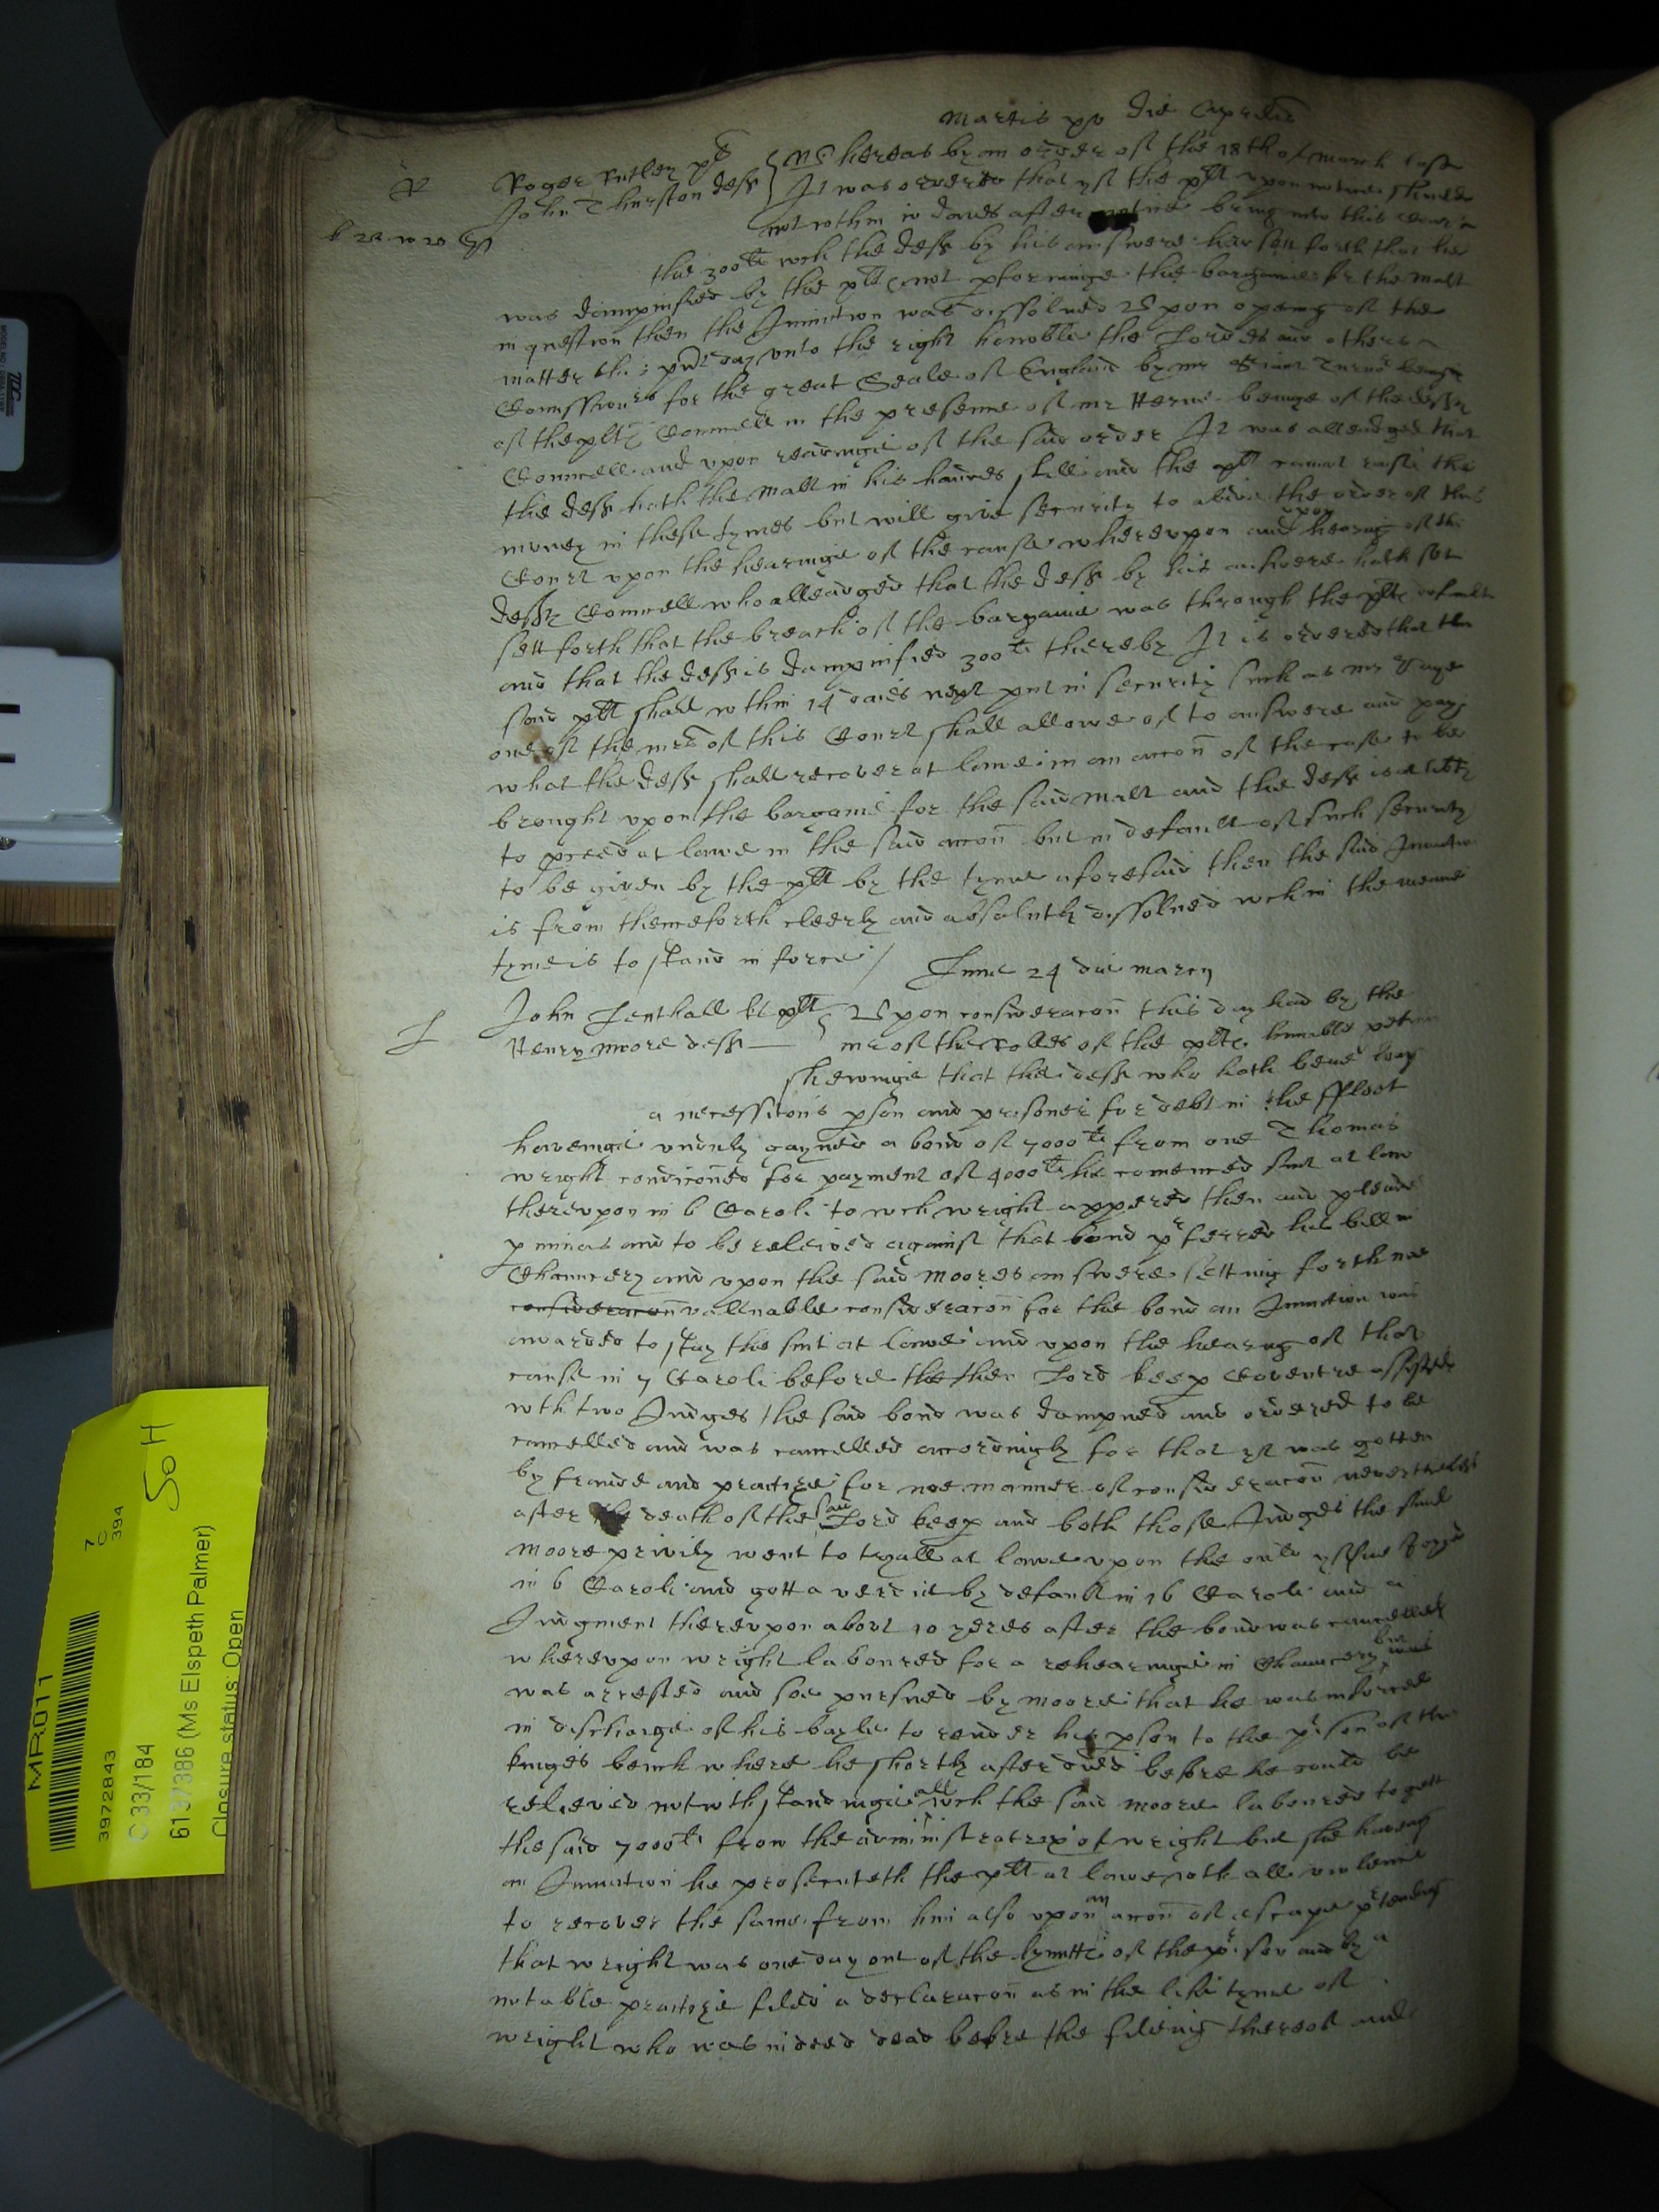 Martis xv die Aprilis
R
Roger Rutley plt
John Thurston deft
Whereas by an order of the 18th of March last
It was ordered that yf the plt upon notice should
not wthin io daies after notice bring into this Court
the 300li wch the deft by his answere hav sett forth that he
was dampnified by the plts not pforminge the bargaine for the malt
in question then the Iniuncion was dissolued Upon opening of the
matter this pnte day unto the right honoble the Lordes and others
Comissionrs for the great Seale of England by mr Turnor being
of the plts Councell in the presence of mr Herne beinge of the defts
Councell and upon readinge of the said order It was alleadged that
the deft hath the malt in his handes still and the plt cannot raise the
money in these tymes but will give security to abide the order of this
Court upon the hearinge of the cause whereupon and upon hearing of the
defts Councell who alleadged that the deft by his answere hath set
sett forth that the breach of the bargaine was through the plts default
and that the deft is dampnified 300li thereby It is ordered that the
said plt shall wthin 14 daies next put in security such as mr Page
one of the mrs of this Court shall allowe of to answere and pay
what the deft shall recover at lawe in an accon of the case to be
brought upon the bargaine for the said malt and the deft is at libty
to pceed at lawe in the said accon but in default of such security
to be given by the plt by the tyme aforesaid then the said Iniunction
is from thenceforth cleerly and absolutly dissolued wch in the meane
tyme is to stand in force /
Lune 24 die marcy
L
John Lenthall kt plt
Henry Moore deft
Upon consideracon this day had by the
mr of the Rolles of the plts humble peticon
shewinge that the deft who hath bene long
a necessitous pson and prisoner for debt in the ffleet
haveinge unduly gayned a bond of 7000li from one Thomas
wright condiconed for payment of 4000li he comenced suit at law
thereupon in 6 Caroli to wch wright appered then and pleaded
p minas and to be releived against that bond pferred his bill in
Chauncery and upon the said Moores answere setting forth noe
consideracon valluable consideracon for the bond an Iniunction was
awarded to stay the suit at lawe and upon the hearing of that
cause in 7 Caroli before the then Lord keep Coventre assisted
wth two Iudges the said bond was dampned and ordered to be
cancelled and was cancelled accordingly for that yt was gotten
by fraude and practize for noe manner of consideracon neverthelesse
after the death of the said Lord keep and both those Iudges the said
Moore privily went to tryall at lawe upon the ould yssue Joyned
in 6 Caroli and gott a verdict by default in 16 Caroli and a
Iudgment thereupon about 10 yeres after the bond was cancelled
whereupon wright laboured for a rehearinge in Chauncery but
was arrested and soe pursued by Moore that he was inforced
in discharge of his bayle to render his pson to the prison of the
kinges bench where he shortly after died before he could be
relieved notwthstandinge all wch the said Moore laboured to gett
the said 7000li from the administratrix of wright but she having
an Iniunction he prosecuteth the plt at lawe wth all violence
to recover the same from him also upon an accon of escape ptending
that wright was one day out of the lymitts of the prison and by a
notable practize filed a declaracon as in the life tyme of
wright who was indeed dead before the fileing thereof and
MR011
3972843
7
C
394
SoH
C 33/184
6137386 (Ms Elspeth Palmer)
Closure status: Open